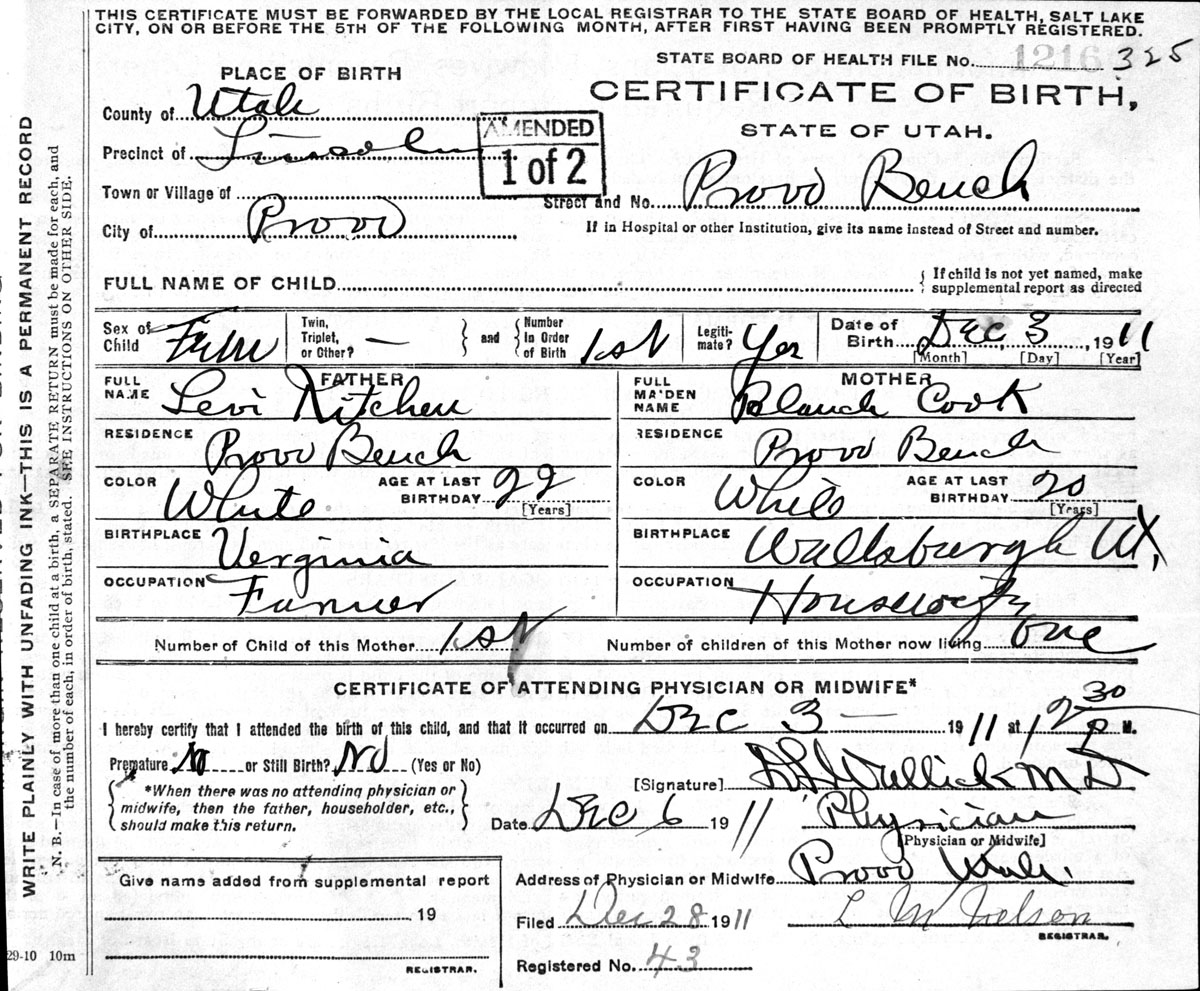 THIS CERTIFICATE MUST BE FORWARDED BY THE LOCAL REGISTRAR TO THE STATE BOARD OF HEALTH, SALT LAKE
CITY, ON OR BEFORE THE 5TH OF THE FOLLOWING MONTH, AFTER FIRST HAVING BEEN PROMPTLY REGISTERED.
STATE BOARD OF HEALTH FILE No. 325
PLACE OF BIRTH
CERTIFICATE OF BIRTH,
STATE OF UTAH.
County of Utah
Precinct of Lincoln
AMENDED
1 of 2
Town or Village of
Street and No. Provo Bench
City of Provo
If in Hospital or other Institution, give its name instead of Street and number.
FULL NAME OF CHILD
{ If child is not yet named, make
supplemental report as directed
Sex of Child Fem
Twin, Triplet, or Other? —
} and {
Number In Order of Birth 1st
Legiti-mate? Yes
Date of Birth Dec, 3, 1911
[Month] [Day] [Year]
FATHER
FULL NAME Levi Kitchen
RESIDENCE Provo Bench
COLOR White
AGE AT LAST BIRTHDAY 22
[Years]
BIRTHPLACE Verginia
OCCUPATION Farmer
MOTHER
FULL MAIDEN NAME Blanch Cook
RESIDENCE Provo Bench
COLOR White
AGE AT LAST BIRTHDAY 20
[Years]
BIRTHPLACE Wallsburgh Ut,
OCCUPATION Housewife
Number of Child of this Mother 1st
Number of children of this Mother now living one
CERTIFICATE OF ATTENDING PHYSICIAN OR MIDWIFE*
I hereby certify that I attended the birth of this child, and that it occurred on Dec 3 — 1911 at 12 30 P M.
Premature No or Still Birth? No (Yes or No)
{ *When there was no attending physician or
midwife, then the father, householder, etc.,
should make this return. }
[Signature] M D
Date Dec 6 1911
Physician
[Physician or Midwife]
Give name added from supplemental report
19
REGISTRAR.
Address of Physician or Midwife Provo Utah.
Filed Dec 28 1911
L M Nelson
REGISTRAR.
Registered No. 43
29-10 10m
WRITE PLAINLY WITH UNFADING INK—THIS IS A PERMANENT RECORD
N. B.—In case of more than one child at a birth, a SEPARATE RETURN must be made for each, and
the number of each, in order of birth, stated. SEE INSTRUCTIONS ON OTHER SIDE.